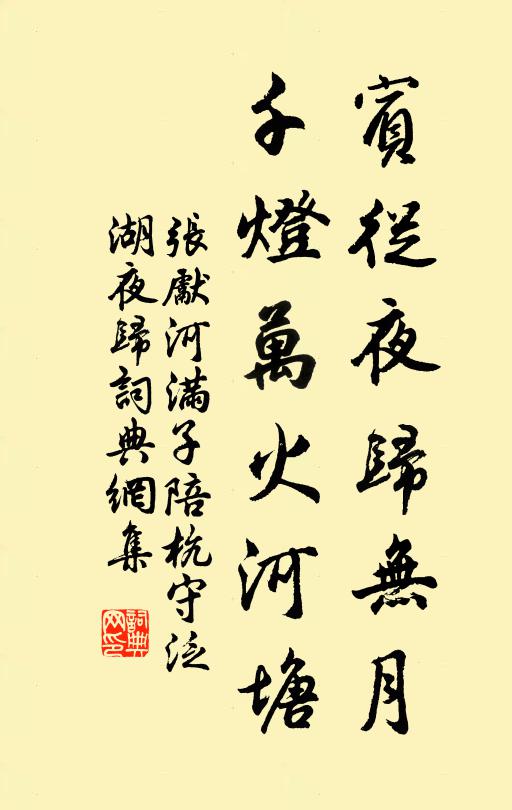 賓從夜歸無月
千燈萬火河塘
張獻河滿子陪杭守泛
湖夜歸詞典網集
詞典
网印